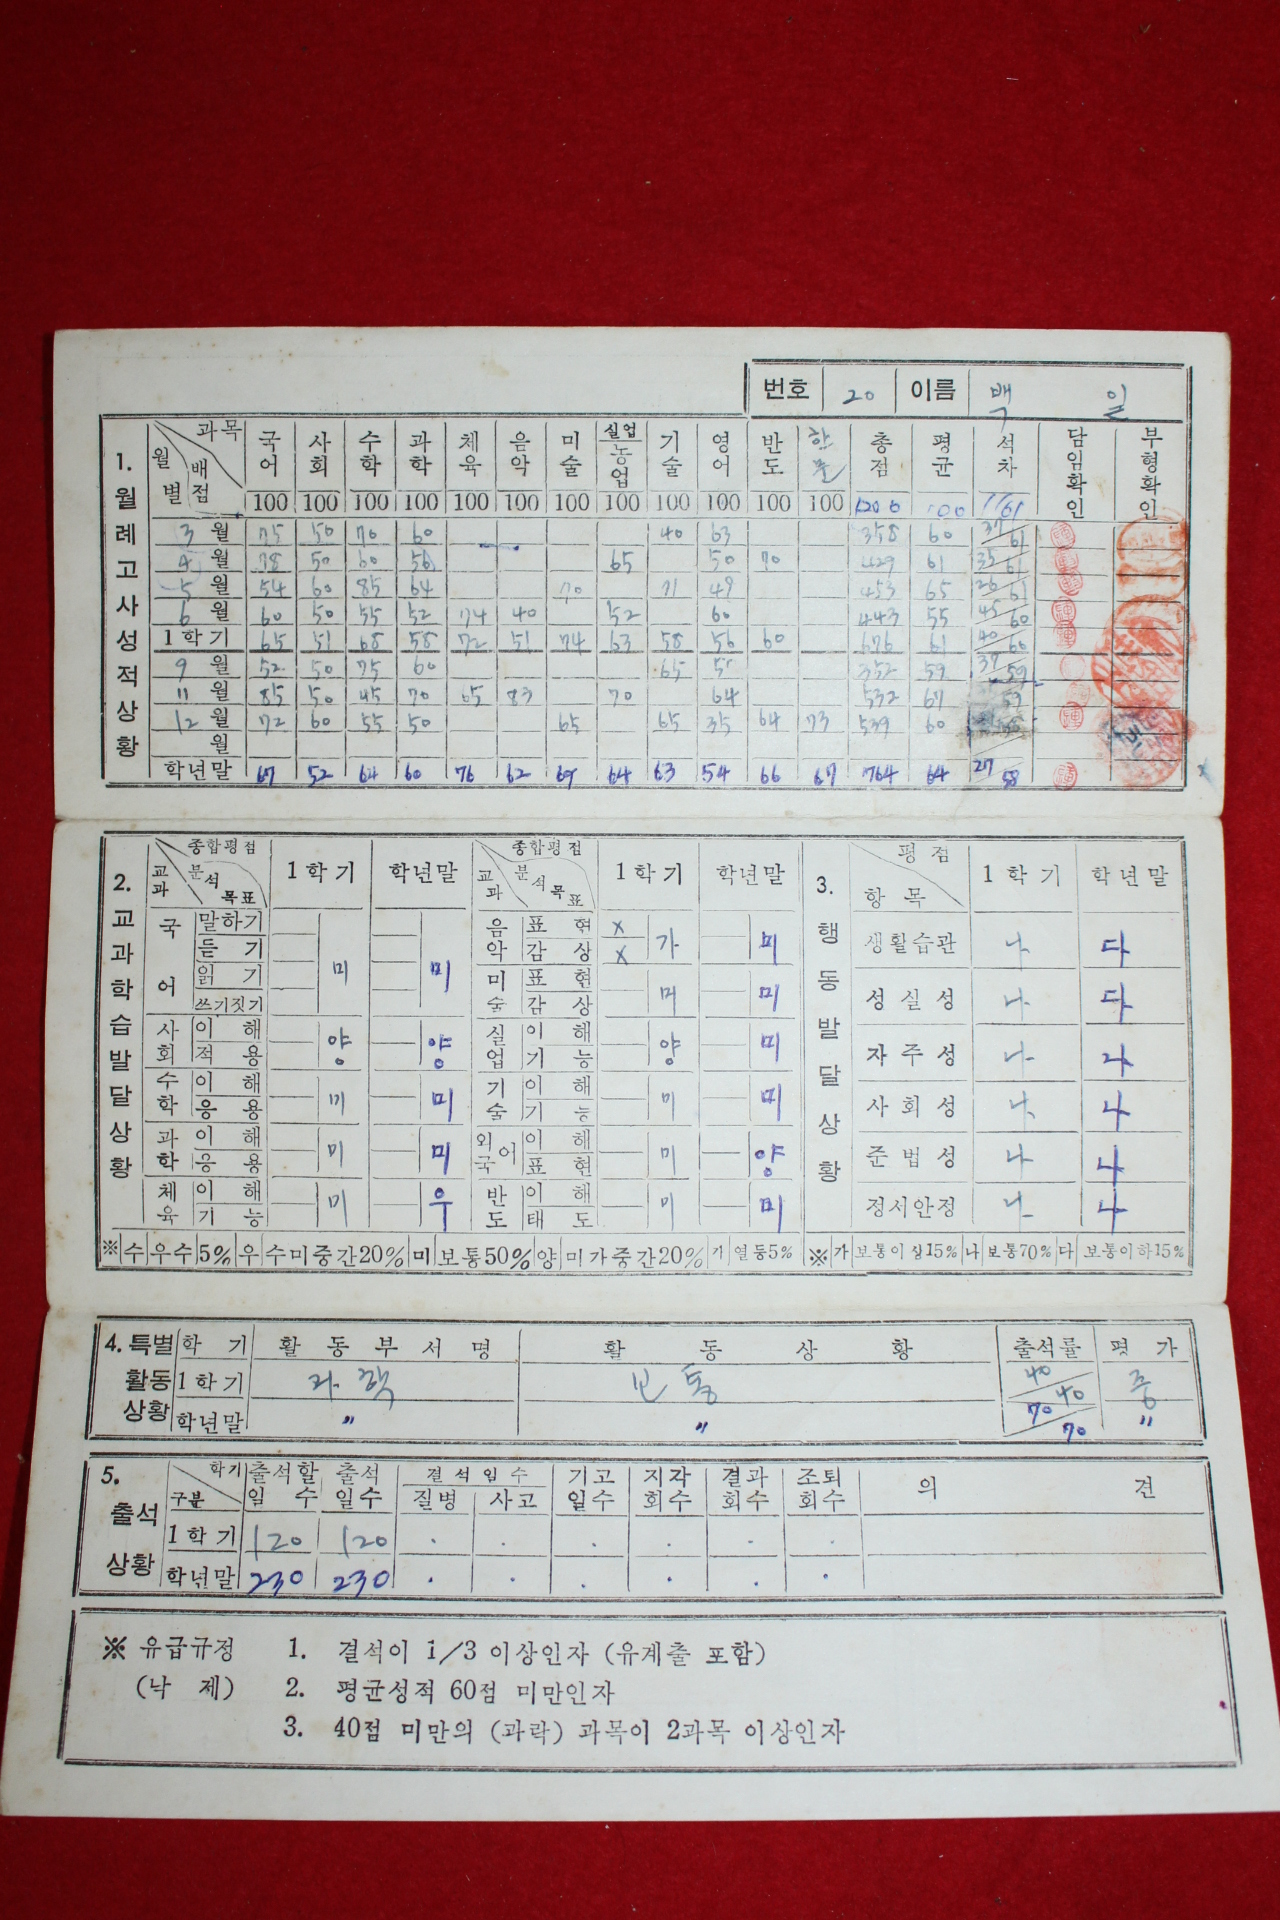 번호 20 이름 백 일
1. 월례고사성적상황
과목 월별 배점 국어 사회 수학 과학 체육 음악 미술 실업 농업 기술 영어 반도 한문 총점 평균 석차 담임확인 부형확인
100 100 100 100 100 100 100 100 100 100 100 100 1200 100 /61
3월 75 50 70 60 40 63 358 60 37/61
4월 78 50 60 56 65 50 70 429 61 35/61
5월 54 60 85 64 70 71 49 453 65 26/61
6월 60 50 55 52 74 40 52 60 443 55 45/60
1학기 65 51 68 58 72 51 74 63 58 56 60 676 61 40/60
9월 52 50 75 60 65 352 59 37/59
11월 85 50 45 70 65 83 70 64 532 67 /59
12월 72 60 55 50 65 65 35 64 73 539 60
월
학년말 67 52 64 60 76 62 69 64 63 54 66 67 764 64 27/58
2. 교과학습발달상황
교과 분석목표 종합평점 1학기 학년말
국어 말하기 듣기 읽기 쓰기짓기 미 미
사회 이해 적용 양 양
수학 이해 응용 미 미
과학 이해 응용 미 미
체육 이해 기능 미 우
교과 분석목표 종합평점 1학기 학년말
음악 표현 감상 x x 가 미
미술 표현 감상 미 미
실업 이해 기능 양 미
기술 이해 기능 미 미
외국어 이해 표현 미 양
반도 이해 태도 미 미
※ 수 우수 5% 우 수미중간20% 미 보통50% 양 미가중간20% 가 열등5%
3. 행동발달상황
항목 평점 1학기 학년말
생활습관 나 다
성실성 나 다
자주성 나 나
사회성 나 나
준법성 나 나
정서안정 나 나
※ 가 보통이상15% 나 보통70% 다 보통이하15%
4. 특별활동상황
학기 활동부서명 활동상황 출석률 평가
1학기 과학 보통 40/40 중
학년말 〃 〃 70/70 〃
5. 출석상황
학기 구분 출석할일수 출석일수 결석일수 질병 사고 기고일수 지각회수 결과회수 조퇴회수 의견
1학기 120 120 · · · · · ·
학년말 230 230 · · · · · ·
※ 유급규정 1. 결석이 1/3 이상인자 (유계출 포함)
(낙 제) 2. 평균성적 60점 미만인자
3. 40점 미만의 (과락) 과목이 2과목 이상인자